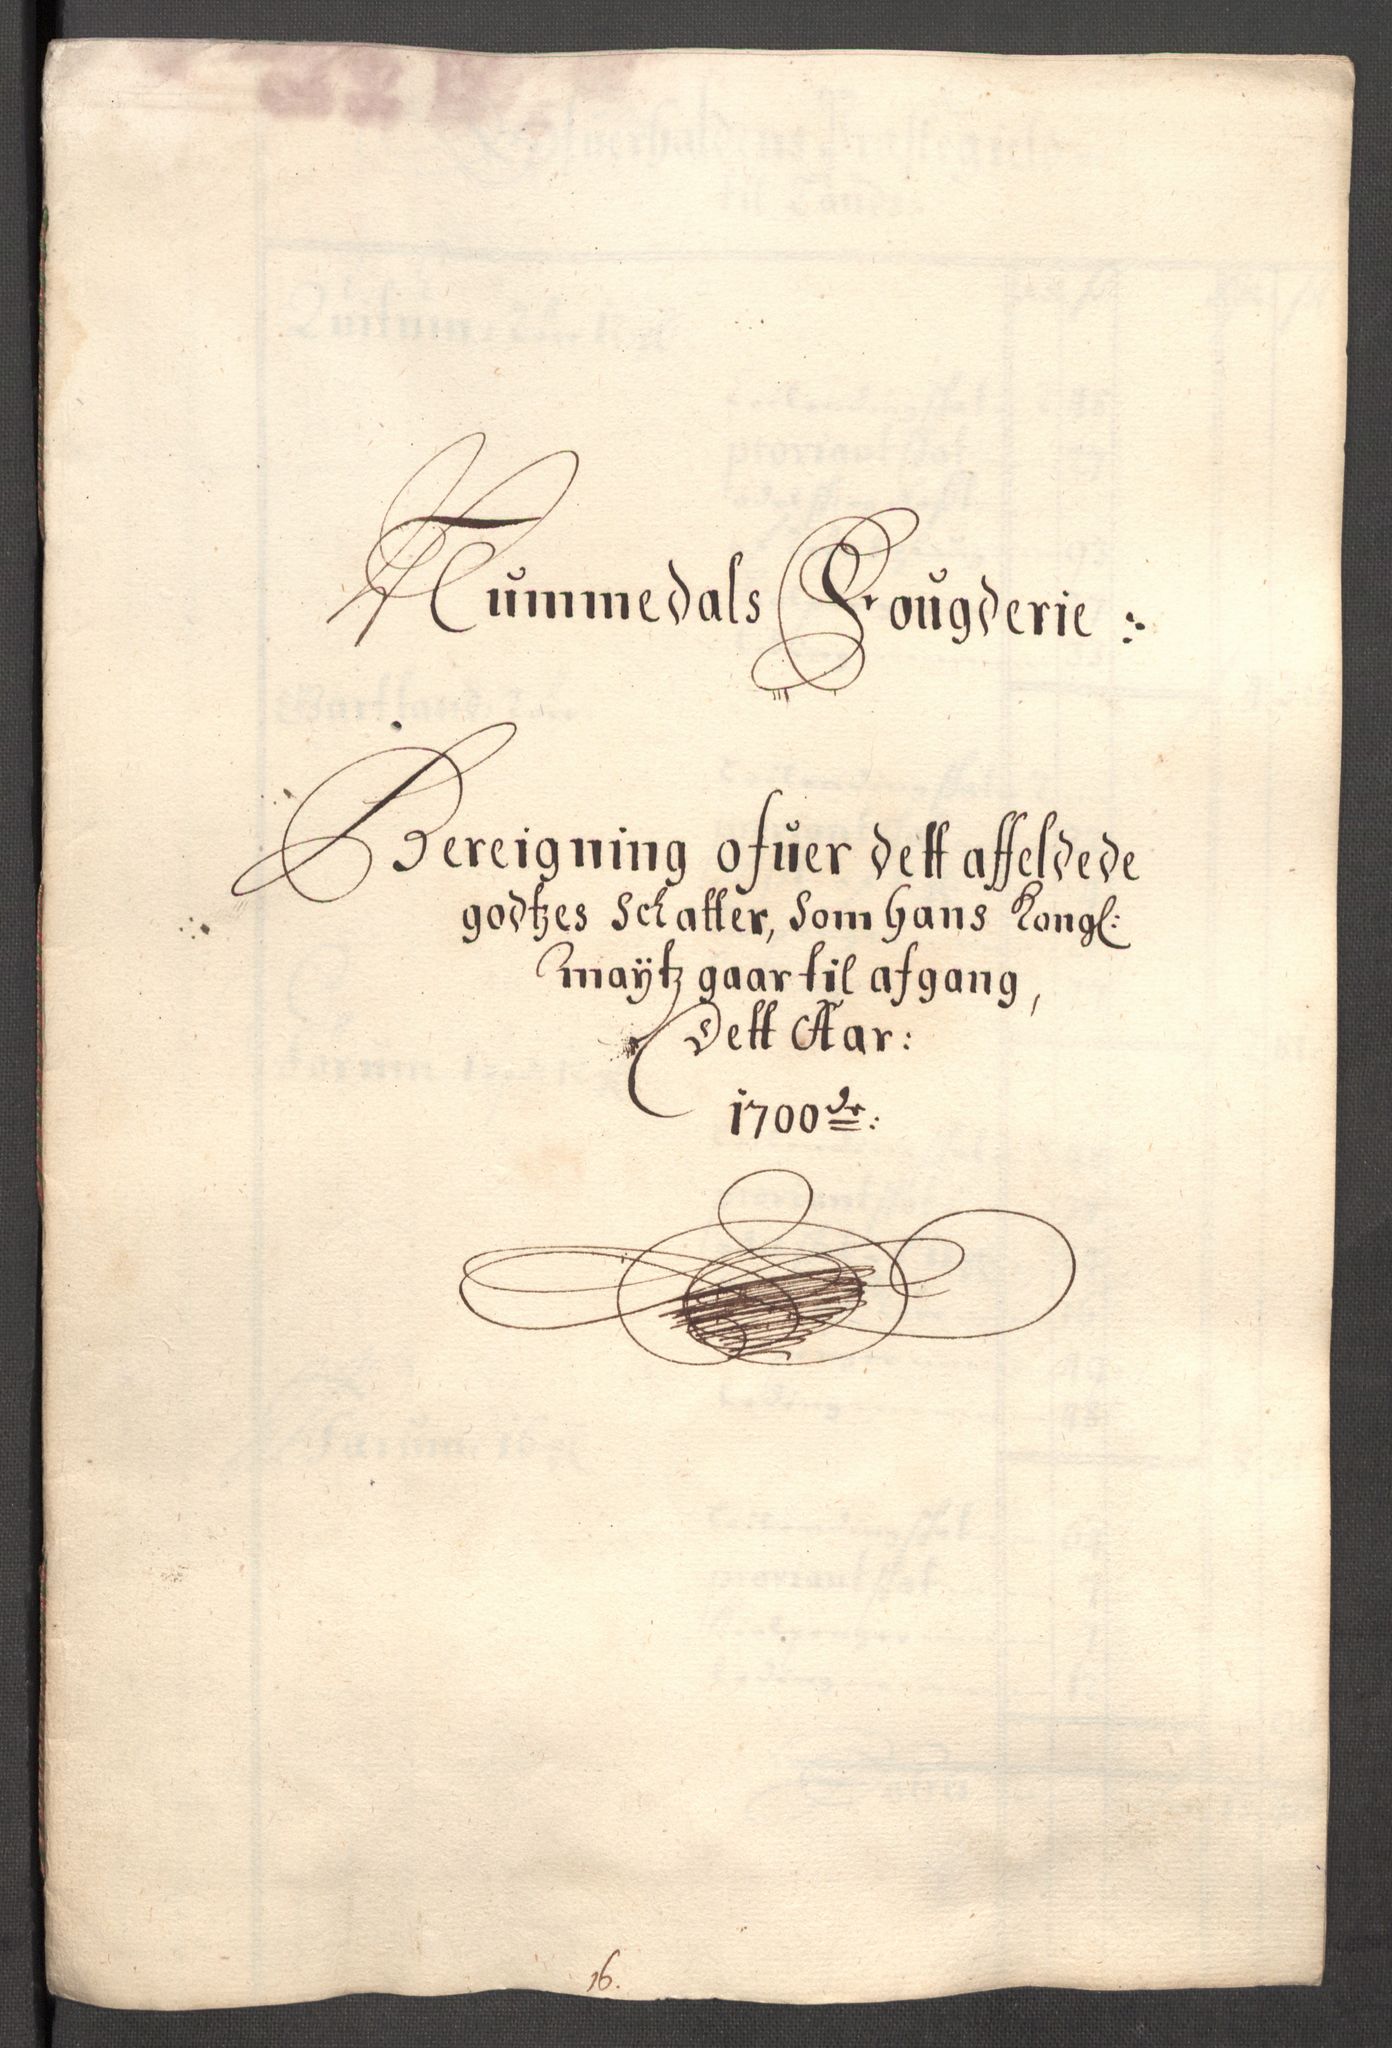 Nummedals Fougderie :
Bereigning ofuer dett affeldede
godtzes Schatter, Som hans Kongl:
maÿtz gaar til afgang,
Dett Aar:
1700de:
16.